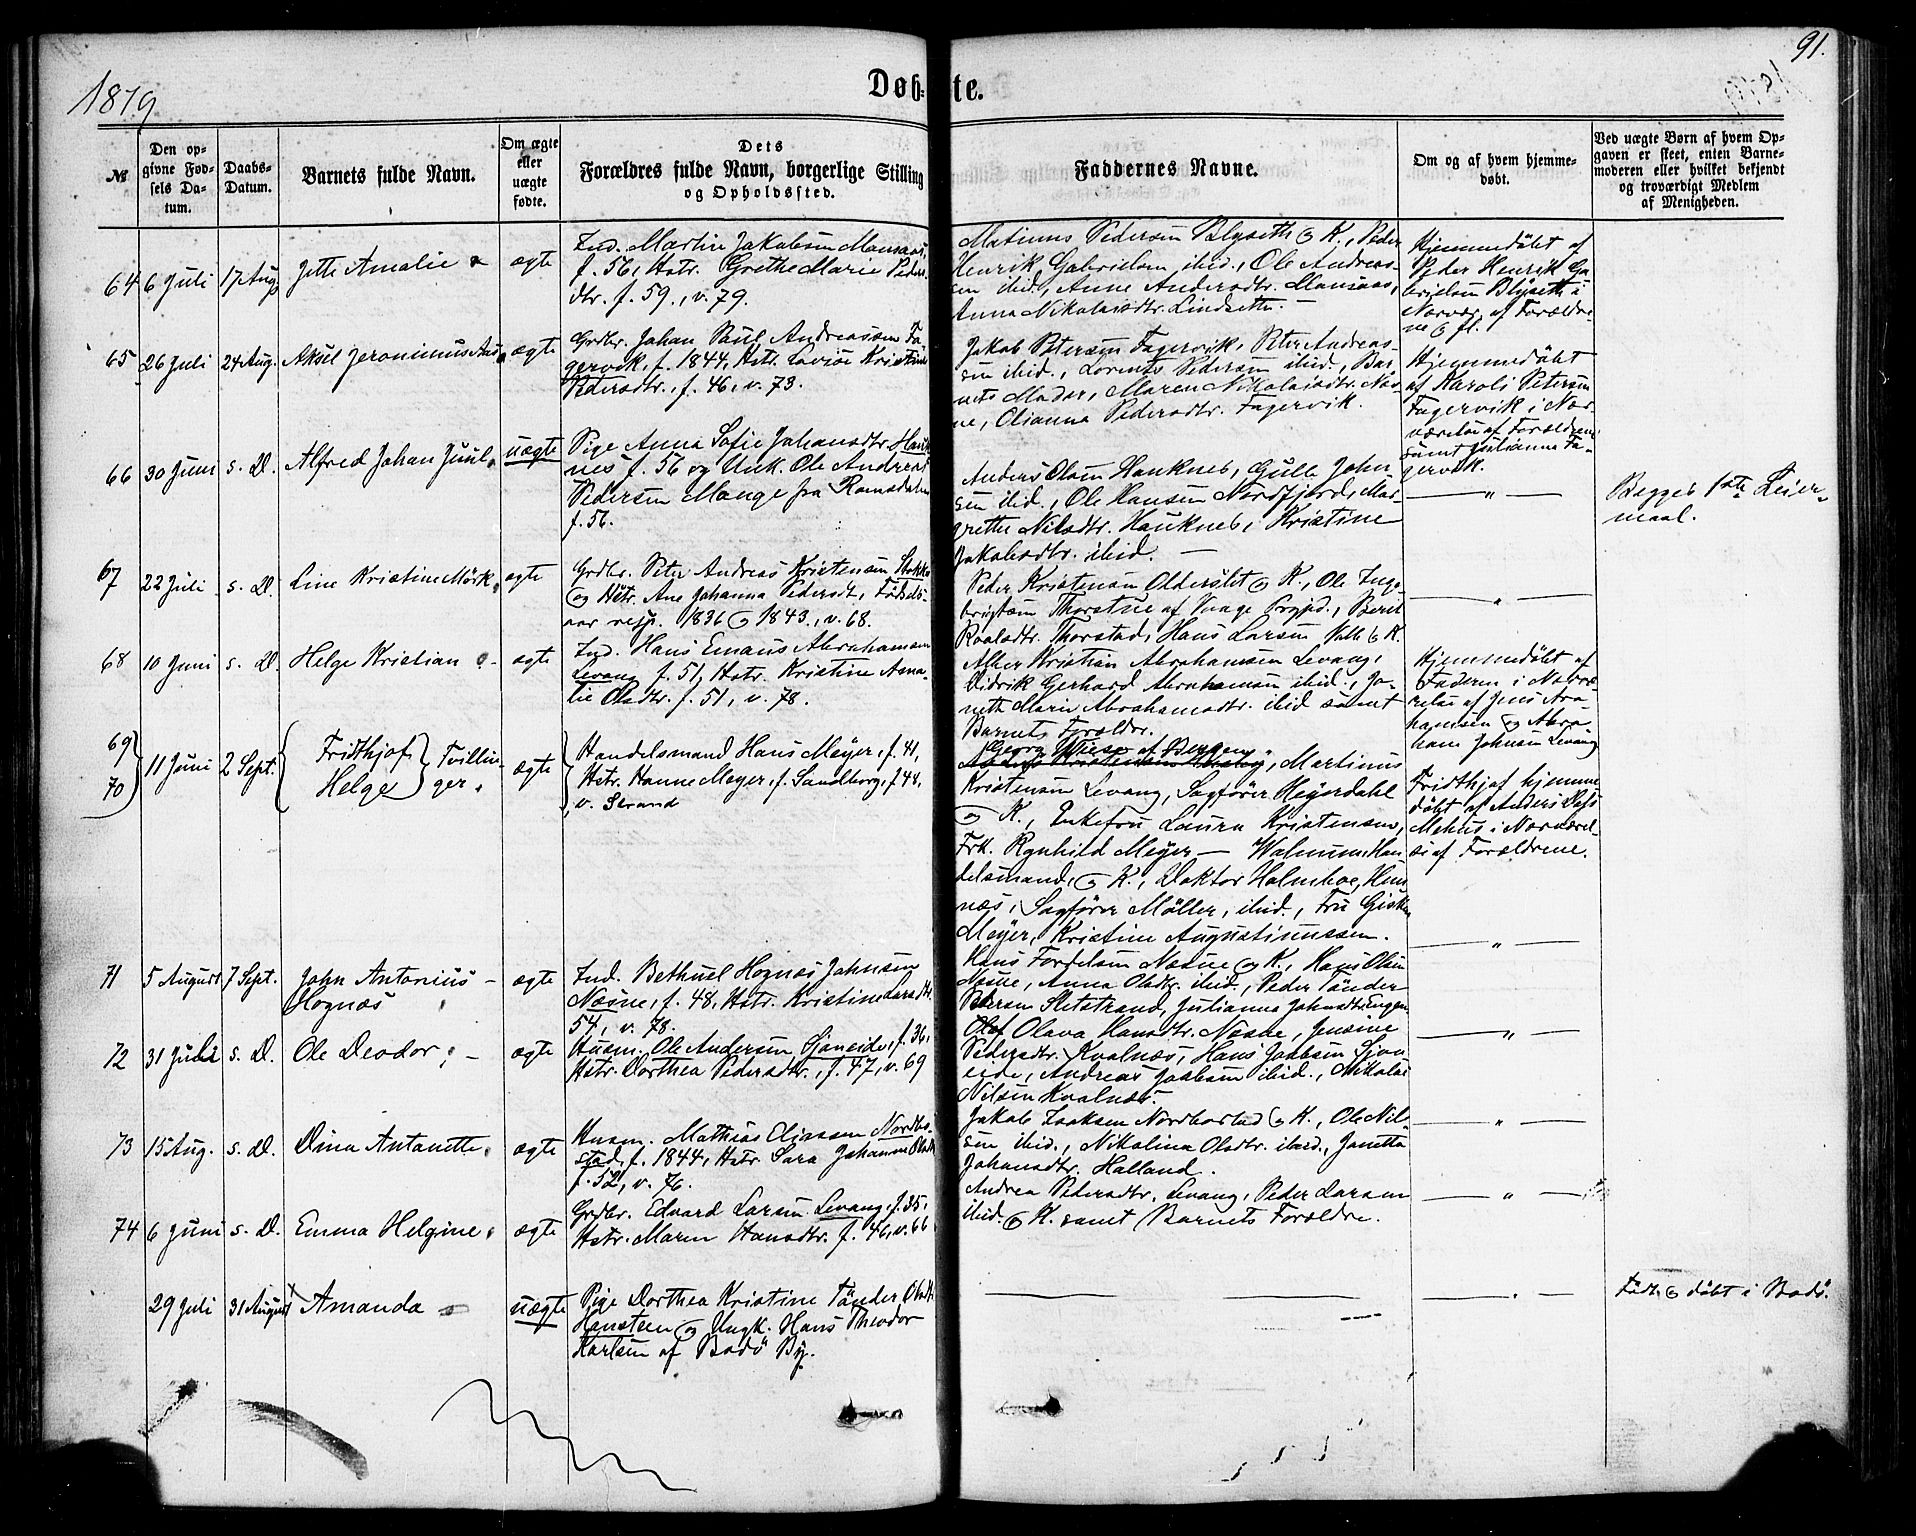 91.
1879
Døb-te.
№
Den op-
givne Fød-
sels Da-
tum.
Daabs-
Datum.
Barnets fulde Navn.
Om ægte
eller
uægte
fødte.
Dets
Forældres fulde Navn, borgerlige Stilling
og Opholdssted.
Faddernes Navne.
Om og af hvem hjemme-
døbt.
Ved uægte Børn af hvem Op-
gaven er skeet, enten Barne-
moderen eller hvilket bekjendt
og troværdigt Medlem
af Menigheden.
64 6 Juli 17 Aug. Jette Amalie ægte
Ind. Martin Jakobsen Mansaas,
f. 56, Hstr. Grethe Marie Peders-
dtr. f. 59., v. 79.
Matinus Pedersen Blyseth & K., Peder
Henrik Gabrielsen ibid., Ole Andreas-
sen ibid., Anne Andersdtr. Mansaas,
Anna Nikolaisdtr. Lindseth.
Hjemmedöbt af
Peder Henrik Ga-
brielsen Blyseth i
Nærvær. af Forældre-
ne & fl.
65 26 Juli 24 Aug. Aksel Jeronimus ægte
Grdbr. Johan Paul Andreassen Fa-
gervik, f. 1844, Hstr. Lovise Kristine
Pedersdtr., f. 46, v. 73.
Jakob Petersen Fagervik, Peter Andreas-
sen ibid., Lorents Pedersen ibid., Bar-
nets Moder, Maren Nikolaisdtr. Næs-
ne, Olianna Pedersdtr. Fagervik.
Hjemmedöbt
af Karoli Petersen
Fagervik i Nær-
værelse af Forældrene
samt Julianne Fa-
gervik.
66 30 Juni s. D. Alfred Johan Juul uægte
Pige Anna Sofie Johansdtr. Hauk-
nes f. 56 og Unk. Ole Andreas
Pedersen Mange fra Romsdalen
f. 56.
Anders Olsen Hauknes, Gulle John-
sen ibid., Ole Hansen Nordfjord, Mar-
grethe Nilsdtr. Hauknes, Kristine
Jakobsdtr. ibid.
— " —
Begges 1ste Leier-
maal.
67 22 Juli s. D. Line Kristine Mörk ægte
Grdbr. Peter Andreas Kristensen Stokke
og Hstr. Ane Johanna Pedersdt., Födsels-
aar resp. 1836 & 1843., v. 68.
Peder Kristensen Olderslet & K., Ole Inge-
brigtsen Thorstue af Vaage Prgjd., Berit
Roalsdtr. Thorstad, Hans Larsen & K.
— " —
68 10 Juni s. D. Helge Kristian ægte
Ind. Hans Emaus Abrahamsen
Levang f. 51, Hstr. Kristine Ama-
lie Olsdtr. f. 51, v. 78.
Kristian Abrahamsen Levang,
Didrik Gerhard Abrahamsen ibid., Ja-
neth Marie Abrahamsdtr. ibid samt
Barnets Forældre.
Hjemmedöbt af
Faderen i Nærvæ-
relse af Jens Abra-
hamsen og Abra-
ham Johnsen Levang
69
70
11 Juni 2 Sept. Fridthjof
Helge
Tvillin-
ger ægte
Handelsmand Hans Meyer, f. 41,
Hstr. Hanne Meyer, f. Sandborg, f. 48,
v. Strand
Georg Wiese af Bergen,
Martinus
Kristensen Levang, Sagförer Heyerdahl
& K., Enkefru Laura Kristensen,
Frk. Ragnhild Meyer — Walnum, Han-
delsmand, & K., Doktor Holmboe, Hem-
næs, Sagförer Möller, ibid., Fru Gisken
Meyer, Kristine Augustinussen.
Fridthjof hjemme-
döbt af Anders
i Nærværel-
se af Forældrene.
— " —
71 5 August 7 Sept. John Antonius
Hognæs ægte
Ind. Bethuel Hognæs Johnsen
Næsne, f. 48, Hstr. Kristine Larsdtr.
54, v. 78.
Hans Fordelsen Næsne & K., Hans Olsen
Næsne, Anna Olsdtr. ibid., Peder Tönder
Petersen Sletstrand, Julianna Johnsdtr. Engen
72 31 Juli s. D. Ole Deodor ægte
Husm. Ole Andersen Sjoneide, f. 36,
Hstr. Dorthea Pedersdtr., f. 47, v. 69
Olava Hansdtr. Næsne, Jensine
Pedersdtr. Kvalnæs, Hans Jakobsen Sjon-
eide, Andreas Jakobsen ibid., Nikolai
Nilsen Kvalnæs.
— " —
73 15 Aug. s. D. Dina Antonette ægte
Husm. Mathias Eliassen Nordbo-
stad, f. 1844, Hstr. Sara Johanne Olsdtr.
f. 52, v. 76.
Jakob Isaksen Nordbostad & K., Ole Nil-
sen ibid., Nikolina Olsdtr. ibid., Janetta
Johansdtr. Halland.
— " —
74 6 Juni s. D. Emma Helgine ægte
Grdbr. Edvard Larsen Levang, f. 35,
Hstr. Maren Hansdtr. f. 46, v. 66
Andrea Pedersdtr. Levang, Peder Larsen
ibid. & K. samt Barnets Forældre.
— " —
29 Juli 31 August Amanda uægte
Pige Dorthea Kristine Tönder Olsdt.
Hansteen og Ungk. Hans Theodor
Karlsen af Bodö By.
Födt & döbt i Bodö.